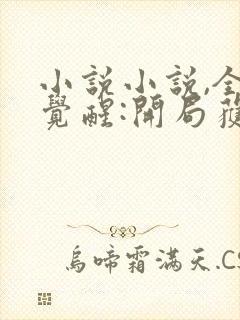 小說小說,全
覺醒:開局獲
烏啼霜滿天.CS